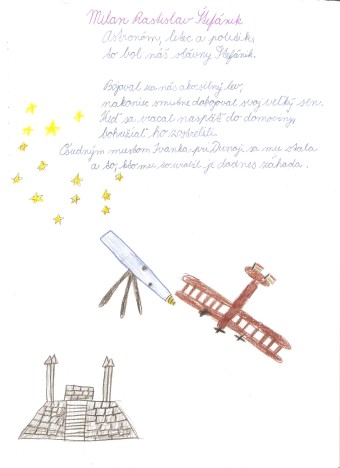 Milan Rastislav Štefánik
Astronóm, letec a politik,
to bol náš slávny Štefánik.
Bojoval za nás ako silný lev,
nakoniec smutne dobojoval svoj veľký sen.
Keď sa vracal naspäť do domoviny,
bohužiaľ ho zostrelili.
Osudným miestom Ivanka pri Dunaji sa mu stala
a to, kto mu to urobil je dodnes záhada.